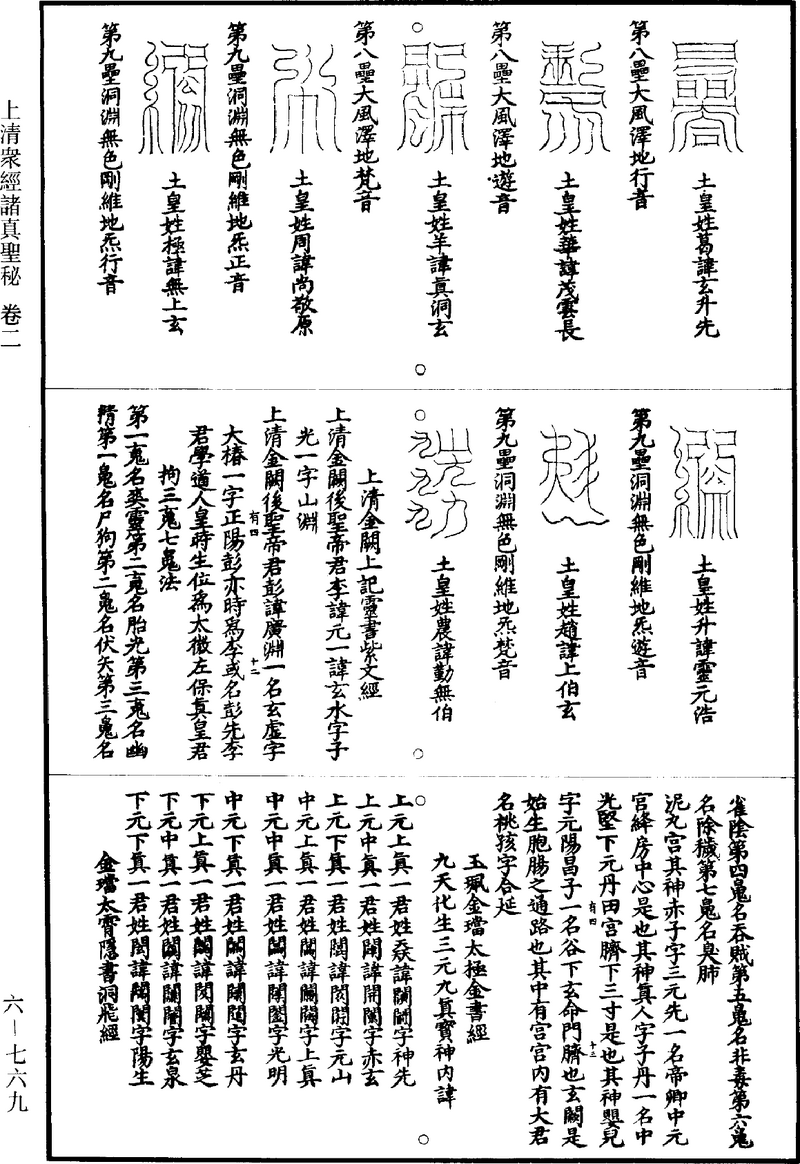 土皇姓葛諱玄升先
第八壘大風澤地行音
土皇姓華諱茂雲長
第八壘大風澤地遊音
土皇姓羊諱真洞玄
第八壘大風澤地梵音
土皇姓周諱尚敬原
第九壘洞淵無色剛維地炁正音
土皇姓極諱無上玄
第九壘洞淵無色剛維地炁行音
土皇姓升諱靈元浩
第九壘洞淵無色剛維地炁遊音
土皇姓趙諱上伯玄
第九壘洞淵無色剛維地炁梵音
土皇姓農諱勤無伯
上清金闕上記靈書紫文經
上清金闕後聖帝君李諱元一諱玄水字子
光一字山淵
上清金闕後聖帝君彭諱廣淵一名玄虛字
有四
十二
大椿一字正陽彭亦時為李或名彭先李
君學道人皇時生位為太微左保真皇君
拘三䰟七魄法
第一䰟名爽靈第二䰟名胎光第三䰟名幽
精第一魄名尸狗第二魄名伏矢第三魄名
雀陰第四魄名吞賊第五魄名非毒第六魄
名除穢第七魄名臭肺
泥丸宮其神赤子字三元先一名帝卿中元
宮絳房中心是也其神真人字子丹一名中
光堅下元丹田宮臍下三寸是也其神嬰兒
有四
十三
字元陽昌子一名谷下玄命門臍也玄闕是
始生胞腸之通路也其中有宮宮內有大君
名桃孩字合延
玉珮金璫太極金書經
九天化生三元九真寶神內諱
上元上真一君姓諱字神先
上元中真一君姓諱字赤玄
上元下真一君姓諱字元山
中元上真一君姓諱字上真
中元中真一君姓諱字光明
中元下真一君姓諱字玄丹
下元上真一君姓諱字嬰芝
下元中真一君姓諱字玄泉
下元下真一君姓諱字陽生
金璫太霄隱書洞飛經
上清衆經諸真聖秘 卷二
六－七六九